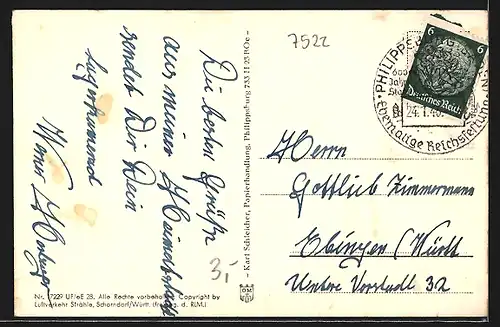 Die besten Grüße
aus meiner Heimatstadt
sendet Dir Dein
Lagerfreund
Werner
7522
3,-
Karl Schleicher, Papierhandlung, Philippsburg 733 11 25 ROe
Nr. 17229 UF/eE 28. Alle Rechte vorbehalten. Copyright by
Luftverkehr Strähle, Schorndorf/Württ. (Freigeg. d. RLM.)
PHILIPPSBURG
24.1.40.
Ehemalige Reichsfestung
6 6
Deutsches Reich
Herrn
Gottlieb Zimmermann
Ebingen (Württ
Untere Vorstadt 32